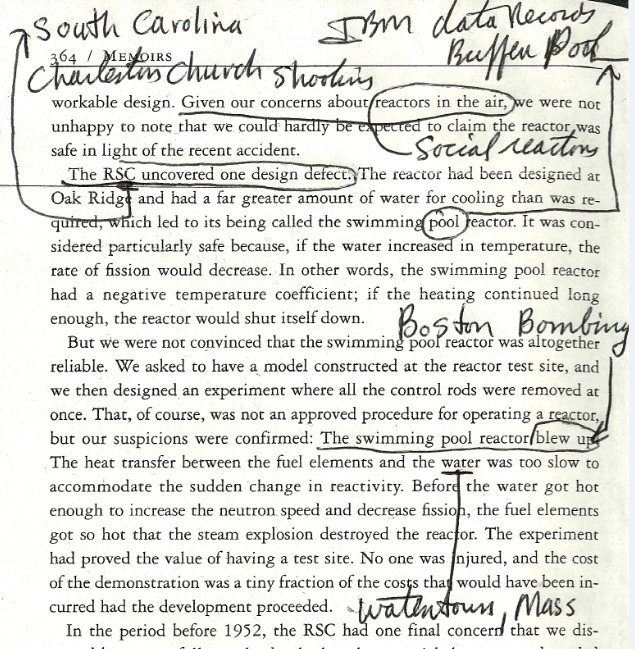 South Carolina
IBM data Records
Buffer Pool
364 / MEMOIRS
Charleston Church Shooting
workable design. Given our concerns about reactors in the air, we were not
unhappy to note that we could hardly be expected to claim the reactor was
safe in light of the recent accident.
Social reactors
The RSC uncovered one design defect. The reactor had been designed at
Oak Ridge and had a far greater amount of water for cooling than was re-
quired, which led to its being called the swimming pool reactor. It was con-
sidered particularly safe because, if the water increased in temperature, the
rate of fission would decrease. In other words, the swimming pool reactor
had a negative temperature coefficient; if the heating continued long
enough, the reactor would shut itself down.
Boston Bombing
But we were not convinced that the swimming pool reactor was altogether
reliable. We asked to have a model constructed at the reactor test site, and
we then designed an experiment where all the control rods were removed at
once. That, of course, was not an approved procedure for operating a reactor,
but our suspicions were confirmed: The swimming pool reactor blew up.
The heat transfer between the fuel elements and the water was too slow to
accommodate the sudden change in reactivity. Before the water got hot
enough to increase the neutron speed and decrease fission, the fuel elements
got so hot that the steam explosion destroyed the reactor. The experiment
had proved the value of having a test site. No one was injured, and the cost
of the demonstration was a tiny fraction of the costs that would have been in-
curred had the development proceeded.
Watertown, Mass
In the period before 1952, the RSC had one final concern that we dis-